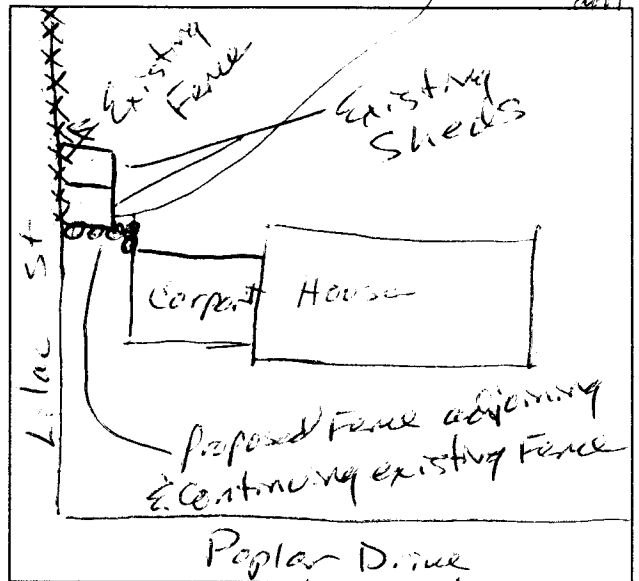 Existing
Fence
Existing
Sheds
Lilac St
Carport
House
Proposed Fence adjoining
& Continuing existing Fence
Poplar Drive